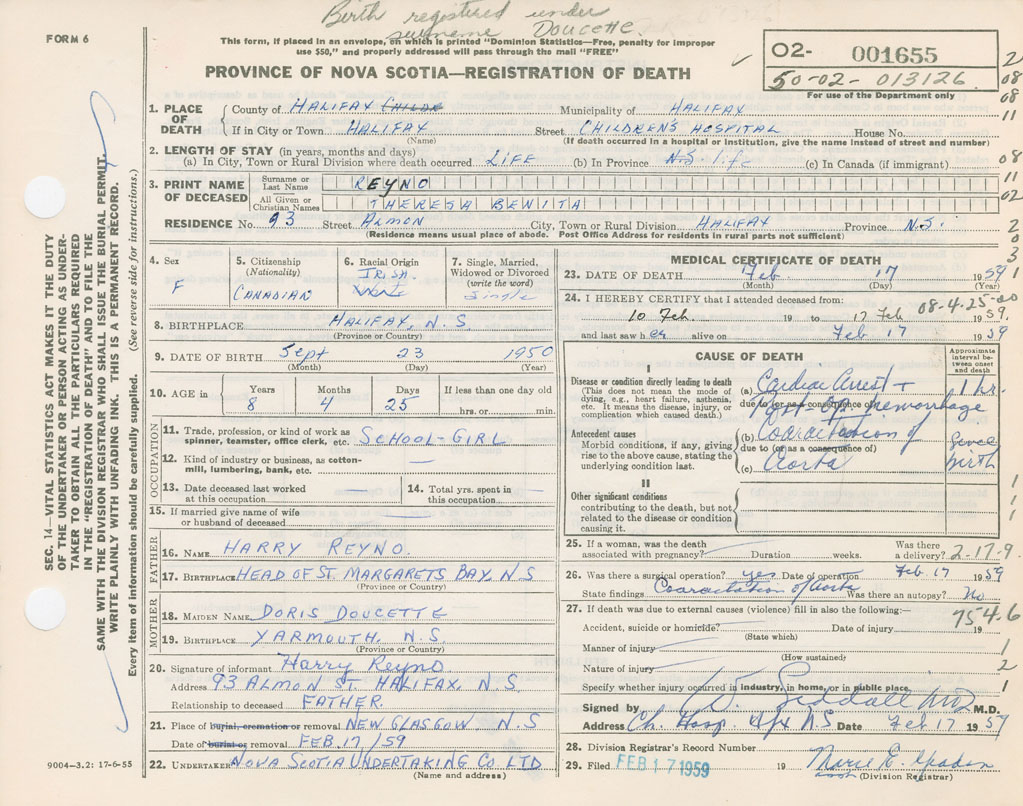 Birth registered under
surname Doucette.
FORM 6
This form, if placed in an envelope, on which is printed "Dominion Statistics—Free, penalty for improper
use $50," and properly addressed will pass through the mail "FREE"
PROVINCE OF NOVA SCOTIA—REGISTRATION OF DEATH
02- 001655
50-02-013126
For use of the Department only
1. PLACE OF DEATH
County of HALIFAX Municipality of HALIFAX
If in City or Town HALIFAX Street CHILDREN'S HOSPITAL House No.
(Name) (If death occurred in a hospital or institution, give the name instead of street and number)
2. LENGTH OF STAY (in years, months and days)
(a) In City, Town or Rural Division where death occurred LIFE (b) In Province N.S. life (c) In Canada (if immigrant)
3. PRINT NAME OF DECEASED
Surname or Last Name REYNO
All Given or Christian Names THERESA BENITA
RESIDENCE No. 93 Street ALMON City, Town or Rural Division HALIFAX Province N.S.
(Residence means usual place of abode. Post Office Address for residents in rural parts not sufficient)
4. Sex F
5. Citizenship (Nationality) CANADIAN
6. Racial Origin IRISH
7. Single, Married, Widowed or Divorced (write the word) Single
8. BIRTHPLACE HALIFAX, N.S
(Province or Country)
9. DATE OF BIRTH Sept 23 1950
(Month) (Day) (Year)
10. AGE in Years 8 Months 4 Days 25 If less than one day old hrs. or min.
OCCUPATION
11. Trade, profession, or kind of work as spinner, teamster, office clerk, etc. SCHOOL-GIRL
12. Kind of industry or business, as cotton-mill, lumbering, bank, etc.
13. Date deceased last worked at this occupation
14. Total yrs. spent in this occupation
15. If married give name of wife or husband of deceased
FATHER
16. NAME HARRY REYNO.
17. BIRTHPLACE HEAD OF ST. MARGARETS BAY, N.S
(Province or Country)
MOTHER
18. MAIDEN NAME DORIS DOUCETTE
19. BIRTHPLACE YARMOUTH, N.S.
(Province or Country)
20. Signature of informant Harry Reyno
Address 93 ALMON ST. HALIFAX, N.S.
Relationship to deceased FATHER.
21. Place of burial, cremation or removal NEW GLASGOW N.S
Date of burial or removal FEB. 17/59
22. UNDERTAKER NOVA SCOTIA UNDERTAKING CO. LTD
(Name and address)
9004-3.2: 17-6-55
MEDICAL CERTIFICATE OF DEATH
23. DATE OF DEATH Feb 17 1959
(Month) (Day) (Year)
08-4.25-00
24. I HEREBY CERTIFY that I attended deceased from:
10 Feb 19 to 17 Feb 1959.
and last saw her alive on Feb 17 1959
CAUSE OF DEATH
Approximate interval between onset and death
I
Disease or condition directly leading to death
(This does not mean the mode of dying, e.g., heart failure, asthenia, etc. It means the disease, injury, or complication which caused death.)
(a) Cardiac arrest + 1 hr.
due to (or as a consequence of) Post Op hemorrhage
Antecedent causes
Morbid conditions, if any, giving rise to the above cause, stating the underlying condition last.
(b) Coarctation of since birth
due to (or as a consequence of)
(c) Aorta
II
Other significant conditions
contributing to the death, but not related to the disease or condition causing it.
25. If a woman, was the death associated with pregnancy? Duration weeks. Was there a delivery? 2-17-9.
26. Was there a surgical operation? yes Date of operation Feb 17 1959
State findings Coarctation of aorta Was there an autopsy? No
27. If death was due to external causes (violence) fill in also the following:—
754.6
Accident, suicide or homicide? Date of injury 19
(State which)
Manner of injury
(How sustained)
Nature of injury
Specify whether injury occurred in industry, in home, or in public place.
Signed by M.D.
Address Ch. Hosp. Hfx NS Date Feb 17 1959
28. Division Registrar's Record Number
29. Filed FEB 17 1959 19 Marie E.
(Division Registrar)
SEC. 14—VITAL STATISTICS ACT MAKES IT THE DUTY
OF THE UNDERTAKER OR PERSON ACTING AS UNDER-
TAKER TO OBTAIN ALL THE PARTICULARS REQUIRED
IN THE "REGISTRATION OF DEATH" AND TO FILE THE
SAME WITH THE DIVISION REGISTRAR WHO SHALL ISSUE THE BURIAL PERMIT.
WRITE PLAINLY WITH UNFADING INK. THIS IS A PERMANENT RECORD.
Every item of information should be carefully supplied. (See reverse side for instructions.)
2
08
08
11
08
11
02
2
0
3
1
1
1
1
1
2
1